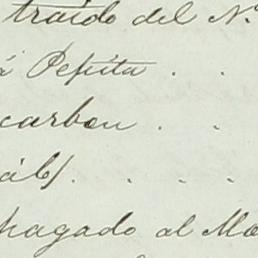 traido del N.º
á Pepita . .
carbon . .
áls/. . . .
pagado al Ma